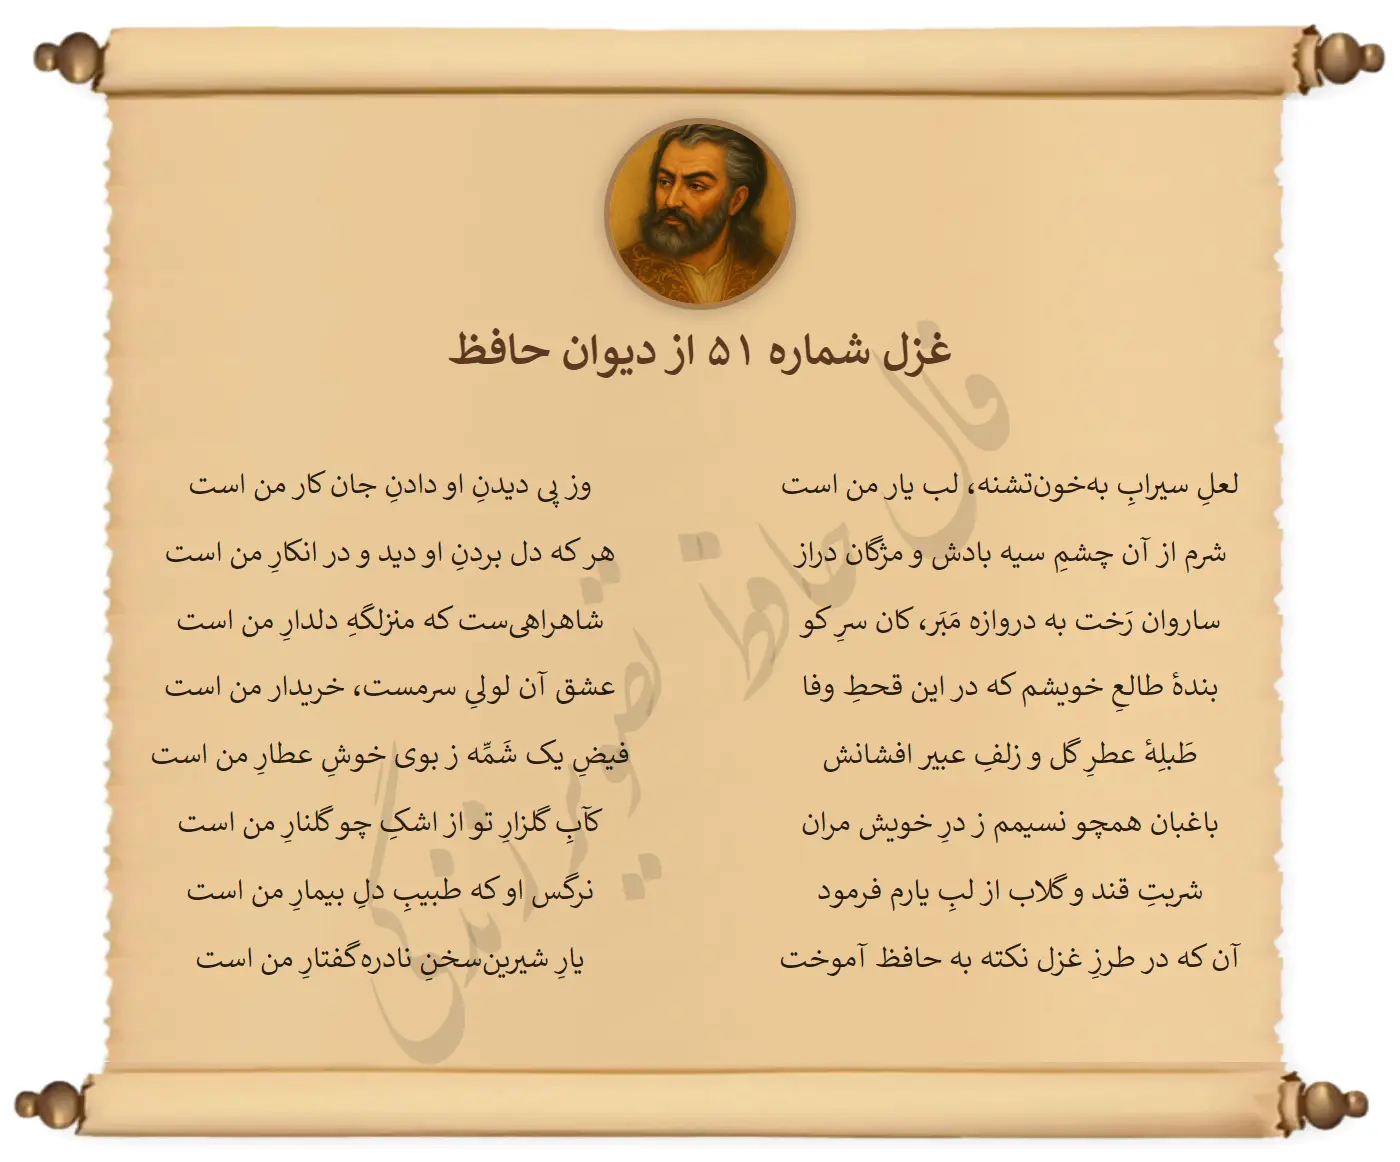 غزل شماره ۵۱ از دیوان حافظ
لعلِ سیرابِ به‌خون‌تشنه، لب یار من است
وز پی دیدنِ او دادنِ جان کار من است
شرم از آن چشمِ سیه بادش و مژگان دراز
هر که دل بردنِ او دید و در انکارِ من است
ساروان رَخت به دروازه مَبَر، کان سرِ کو
شاهراهی‌ست که منزلگهِ دلدارِ من است
بندهٔ طالعِ خویشم که در این قحطِ وفا
عشق آن لولیِ سرمست، خریدار من است
طَبلِهٔ عطرِ گل و زلفِ عبیر افشانش
فیضِ یک شَمِّه ز بوی خوشِ عطارِ من است
باغبان همچو نسیمم ز درِ خویش مران
کآبِ گلزارِ تو از اشکِ چو گلنارِ من است
شربتِ قند و گلاب از لبِ یارم فرمود
نرگس او که طبیبِ دلِ بیمارِ من است
آن که در طرزِ غزل نکته به حافظ آموخت
یارِ شیرین‌سخنِ نادره‌گفتارِ من است
فال حافظ تصویر زندگی